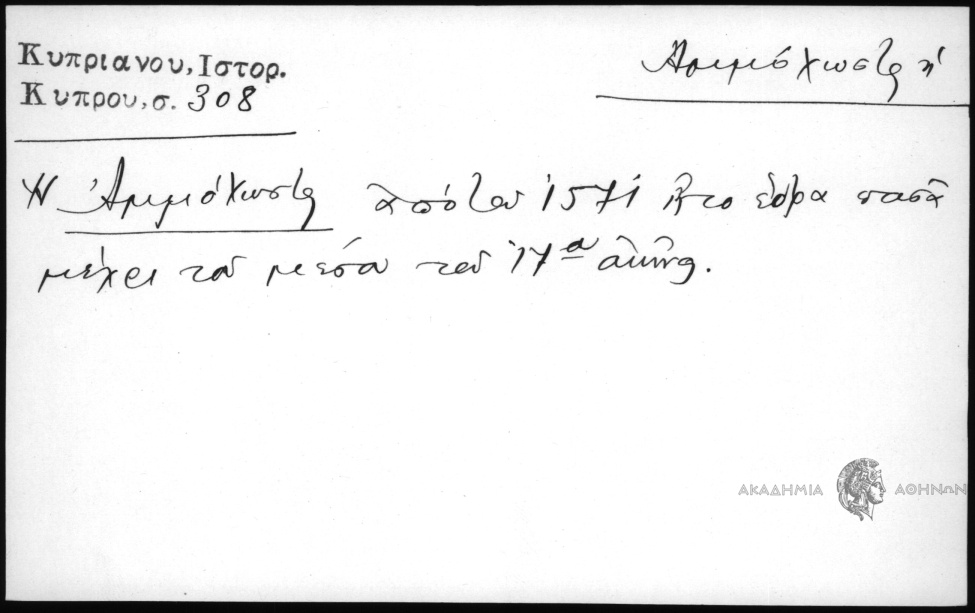 Κυπριανου, Ιστορ.
Κυπρου, σ. 308
Ἀμμόχωστος ἡ
Ἡ Ἀμμόχωστος ἀπὸ τοῦ 1571 ἦτο ἕδρα πασᾶ
μέχρι τοῦ μέσα τοῦ 17ᵒᵘ
ΑΚΑΔΗΜΙΑ ΑΘΗΝΩΝ